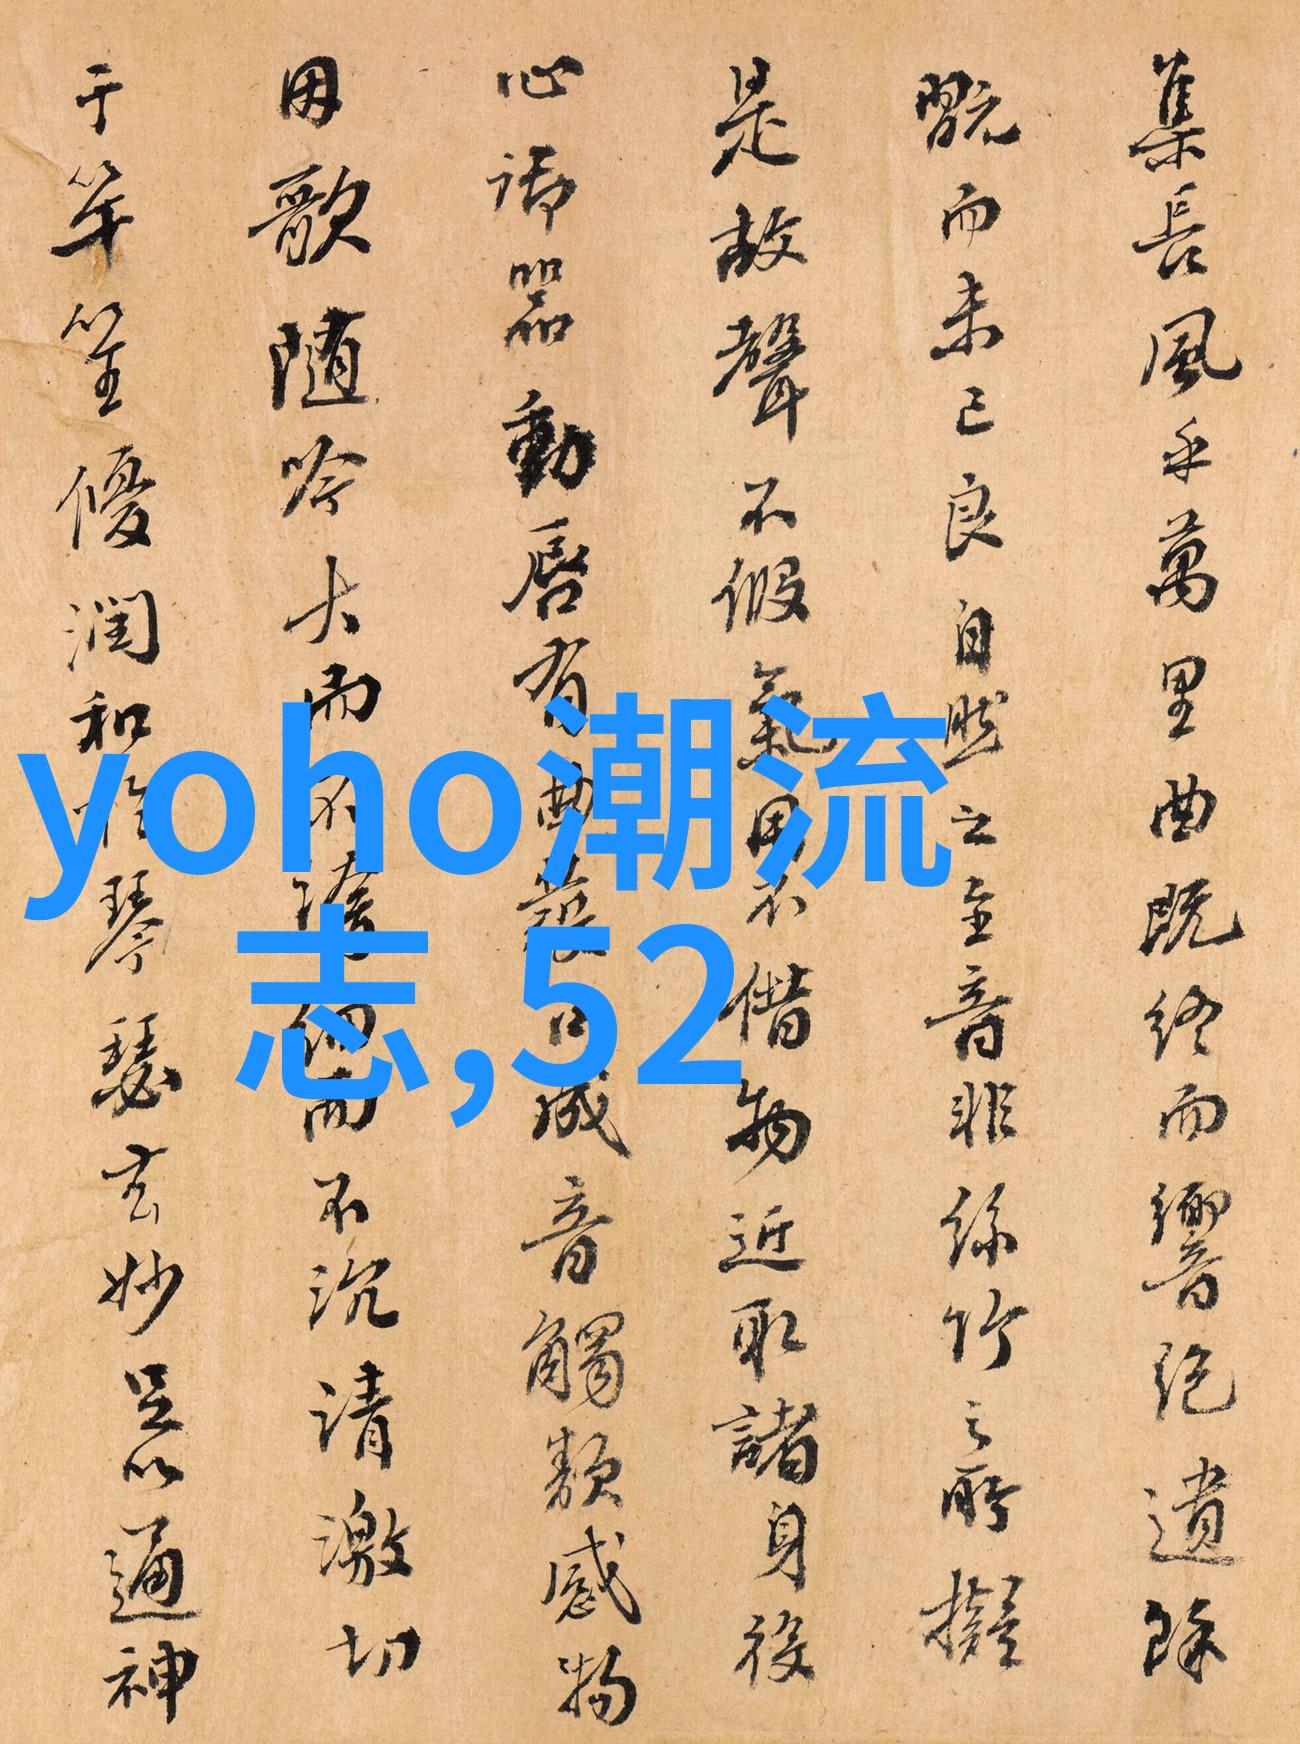 集長風乎萬里曲既終而響絕遺餘
翫而未已良自然之至音非絲竹之所擬
是故聲不假氣用不借物近取諸身役
心御器動唇有曲發口成音觸類感物
因歌隨吟大而不洿細而不沉清激切
于竽笙優潤和於琴瑟玄妙足以通神
yoho潮流
志,52